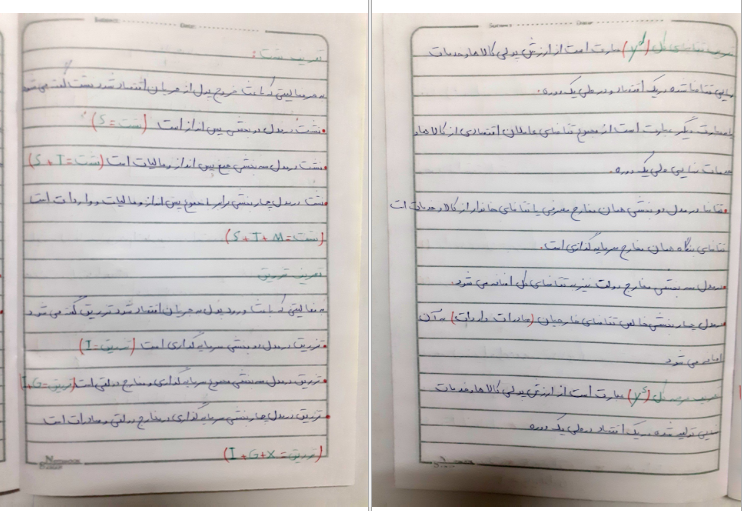 تعریف تقاضای کل (yᵈ) عبارت است از ارزش پولی کالاها و خدمات
نهایی تقاضا شده در یک اقتصاد و در طی یک دوره.
به عبارت دیگر عبارت است از مجموع تقاضای عاملان اقتصادی از کالاها و
خدمات نهایی طی یک دوره.
تقاضا در مدل دو بخشی همان مخارج مصرفی یا تقاضای خانوار از کالا و خدمات است
تقاضای بنگاه همان مخارج سرمایه گذاری است.
در مدل سه بخشی مخارج دولت نیز به تقاضای کل اضافه می شود.
در مدل چهار بخشی خالص تقاضای خارجیان (صادرات واردات) به آن
اضافه می شود
تعریف عرضه کل (yˢ) عبارت است از ارزش پولی کالاها و خدمات
نهایی تولید شده در یک اقتصاد در طی یک دوره
تعریف نشت:
به هر فعالیتی که باعث خروج پول از جریان اقتصاد شود نشت گفته می شود
نشت در مدل دو بخشی پس انداز است (نشت = S)
نشت در مدل سه بخشی جمع پس انداز و مالیات است (نشت = S + T)
نشت در مدل چهار بخشی برابر با مجموع پس انداز و مالیات و واردات است
(نشت = S + T + M)
تعریف تزریق
به فعالیتی که باعث ورود پول به جریان اقتصاد شود تزریق گفته می شود
تزریق در مدل دو بخشی سرمایه گذاری است (تزریق = I)
تزریق در مدل سه بخشی مجموع سرمایه گذاری و مخارج دولتی است (تزریق = I+G)
تزریق در مدل چهار بخشی سرمایه گذاری و مخارج دولتی و صادرات است
(تزریق = I + G + X)